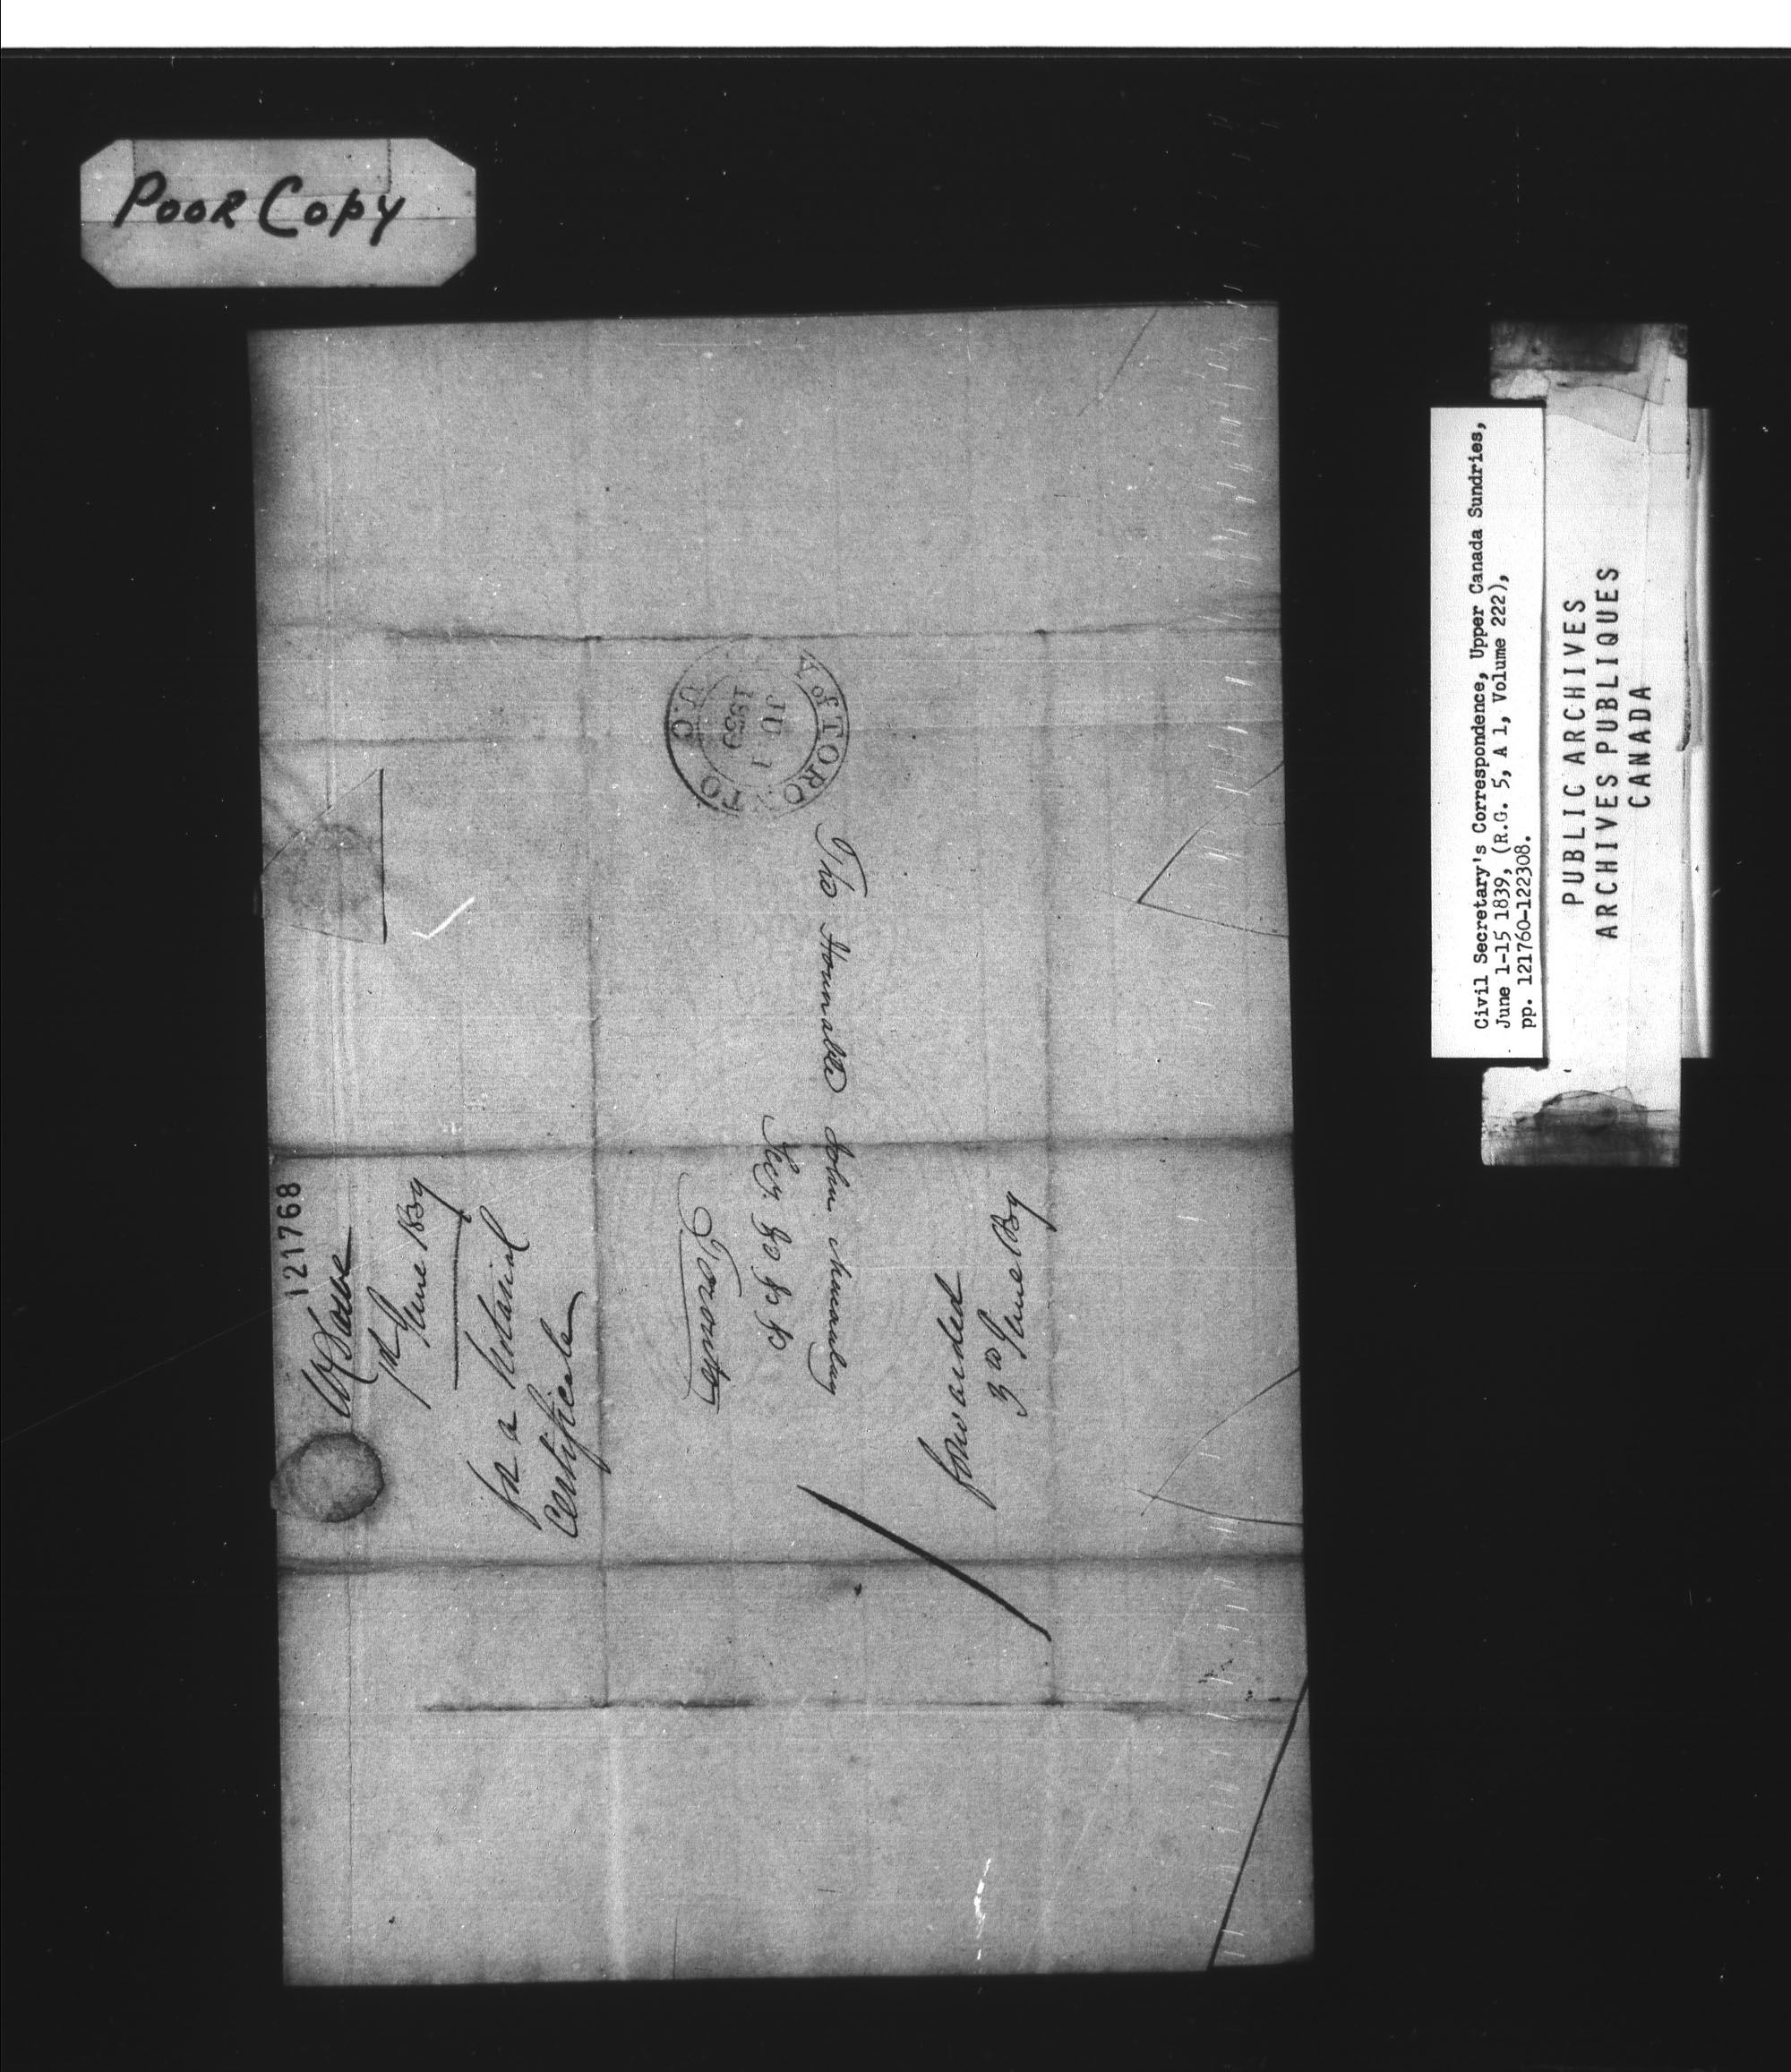 POOR COPY
CITY of TORONTO
JU 1
1839
U.C
The Honorable John Macaulay
Toronto
121768
1st June 1839
for a Notarial
Certificate
forwarded
3d June 1839
Civil Secretary's Correspondence, Upper Canada Sundries,
June 1-15 1839, (R.G. 5, A 1, Volume 222),
pp. 121760-122308.
PUBLIC ARCHIVES
ARCHIVES PUBLIQUES
CANADA